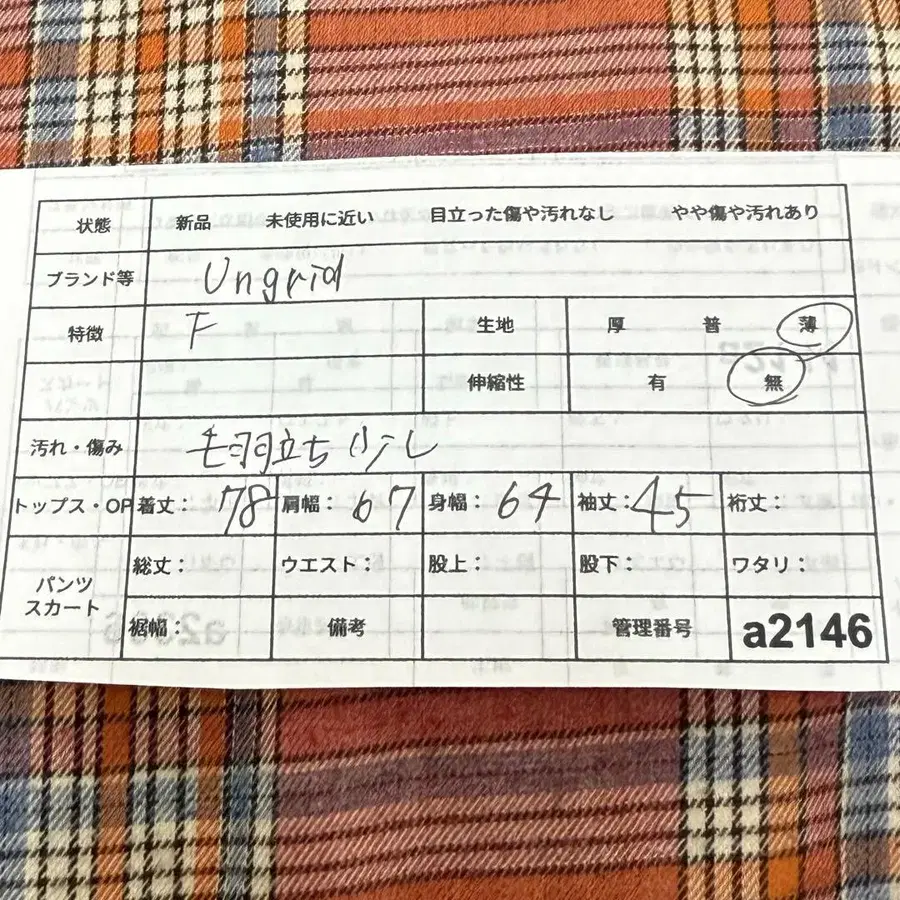 状態 新品 未使用に近い 目立った傷や汚れなし やや傷や汚れあり
ブランド等 Ungrid
特徴 F 生地 厚 普 薄
伸縮性 有 無
汚れ・傷み 毛羽立ち少し
トップス・OP 着丈: 78 肩幅: 67 身幅: 64 袖丈: 45 裄丈:
パンツ スカート 総丈: ウエスト: 股上: 股下: ワタリ:
裾幅: 備考 管理番号 a2146